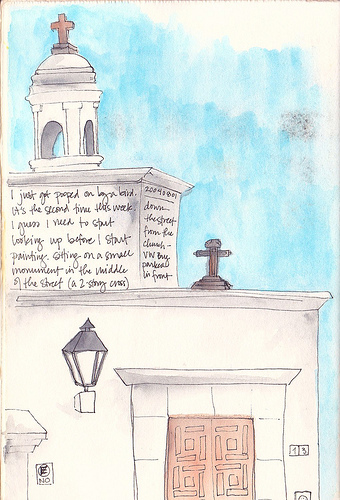 I just got pooped on by a bird.
It's the second time this week.
I guess I need to start
looking up before I start
painting. Sitting on a small
monument in the middle
of the street (a 2-story cross)
20040801
down
the street
from the
church -
VW bug
parked
in front
E
NO
13